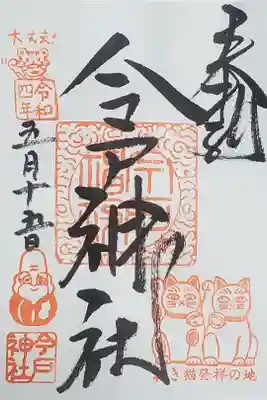 奉拝
今戸神社
大丈夫
令和
四年
五月十五日
今戸
神社
招き猫発祥の地